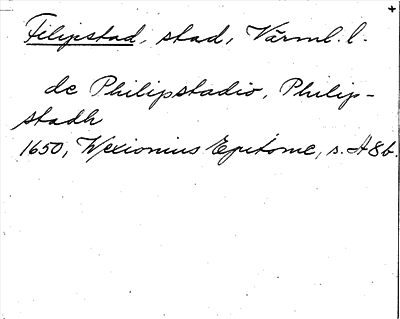 Filipstad, stad, Värml. l.
de Philipstadio, Philip-
stadh
1650, Wexionius Epitome, s. A8b.